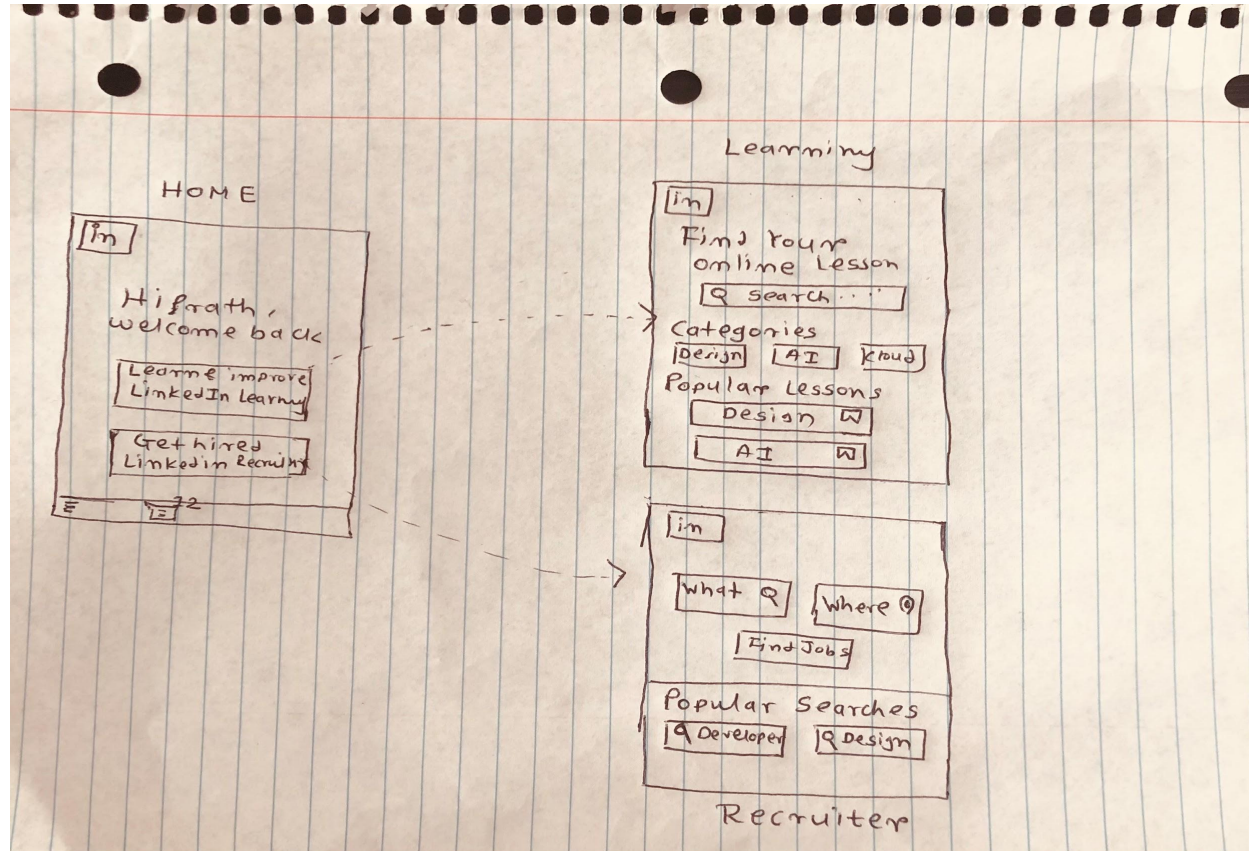 HOME
in
Hi frath,
welcome back
Learn & improve
LinkedIn Learning
Get hired
Linkedin Recruiting
Learniny
in
Find Your
online Lesson
Search....
Categories
Design AI Kloud
Popular Lessons
Design
AI
in
What Where
Find Jobs
Popular Searches
Developer Design
Recruiter